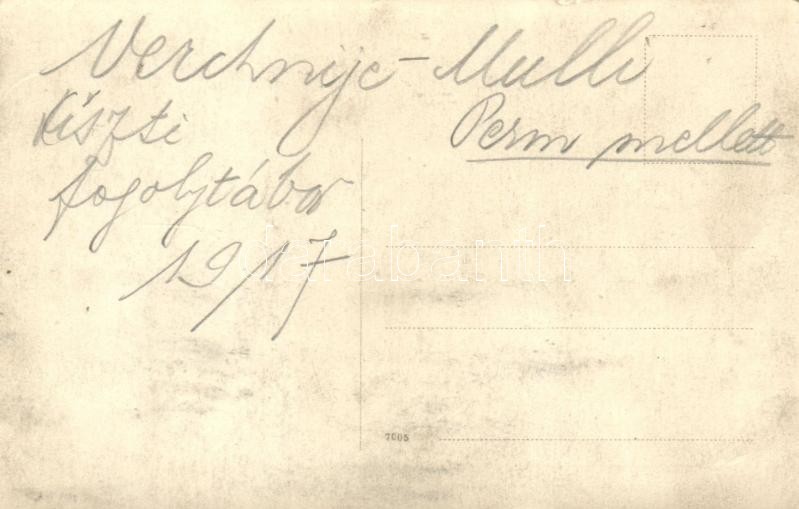 Verchnije-Mulli
Perm mellett
tiszti
fogolytábor
1917
darabanth
7005